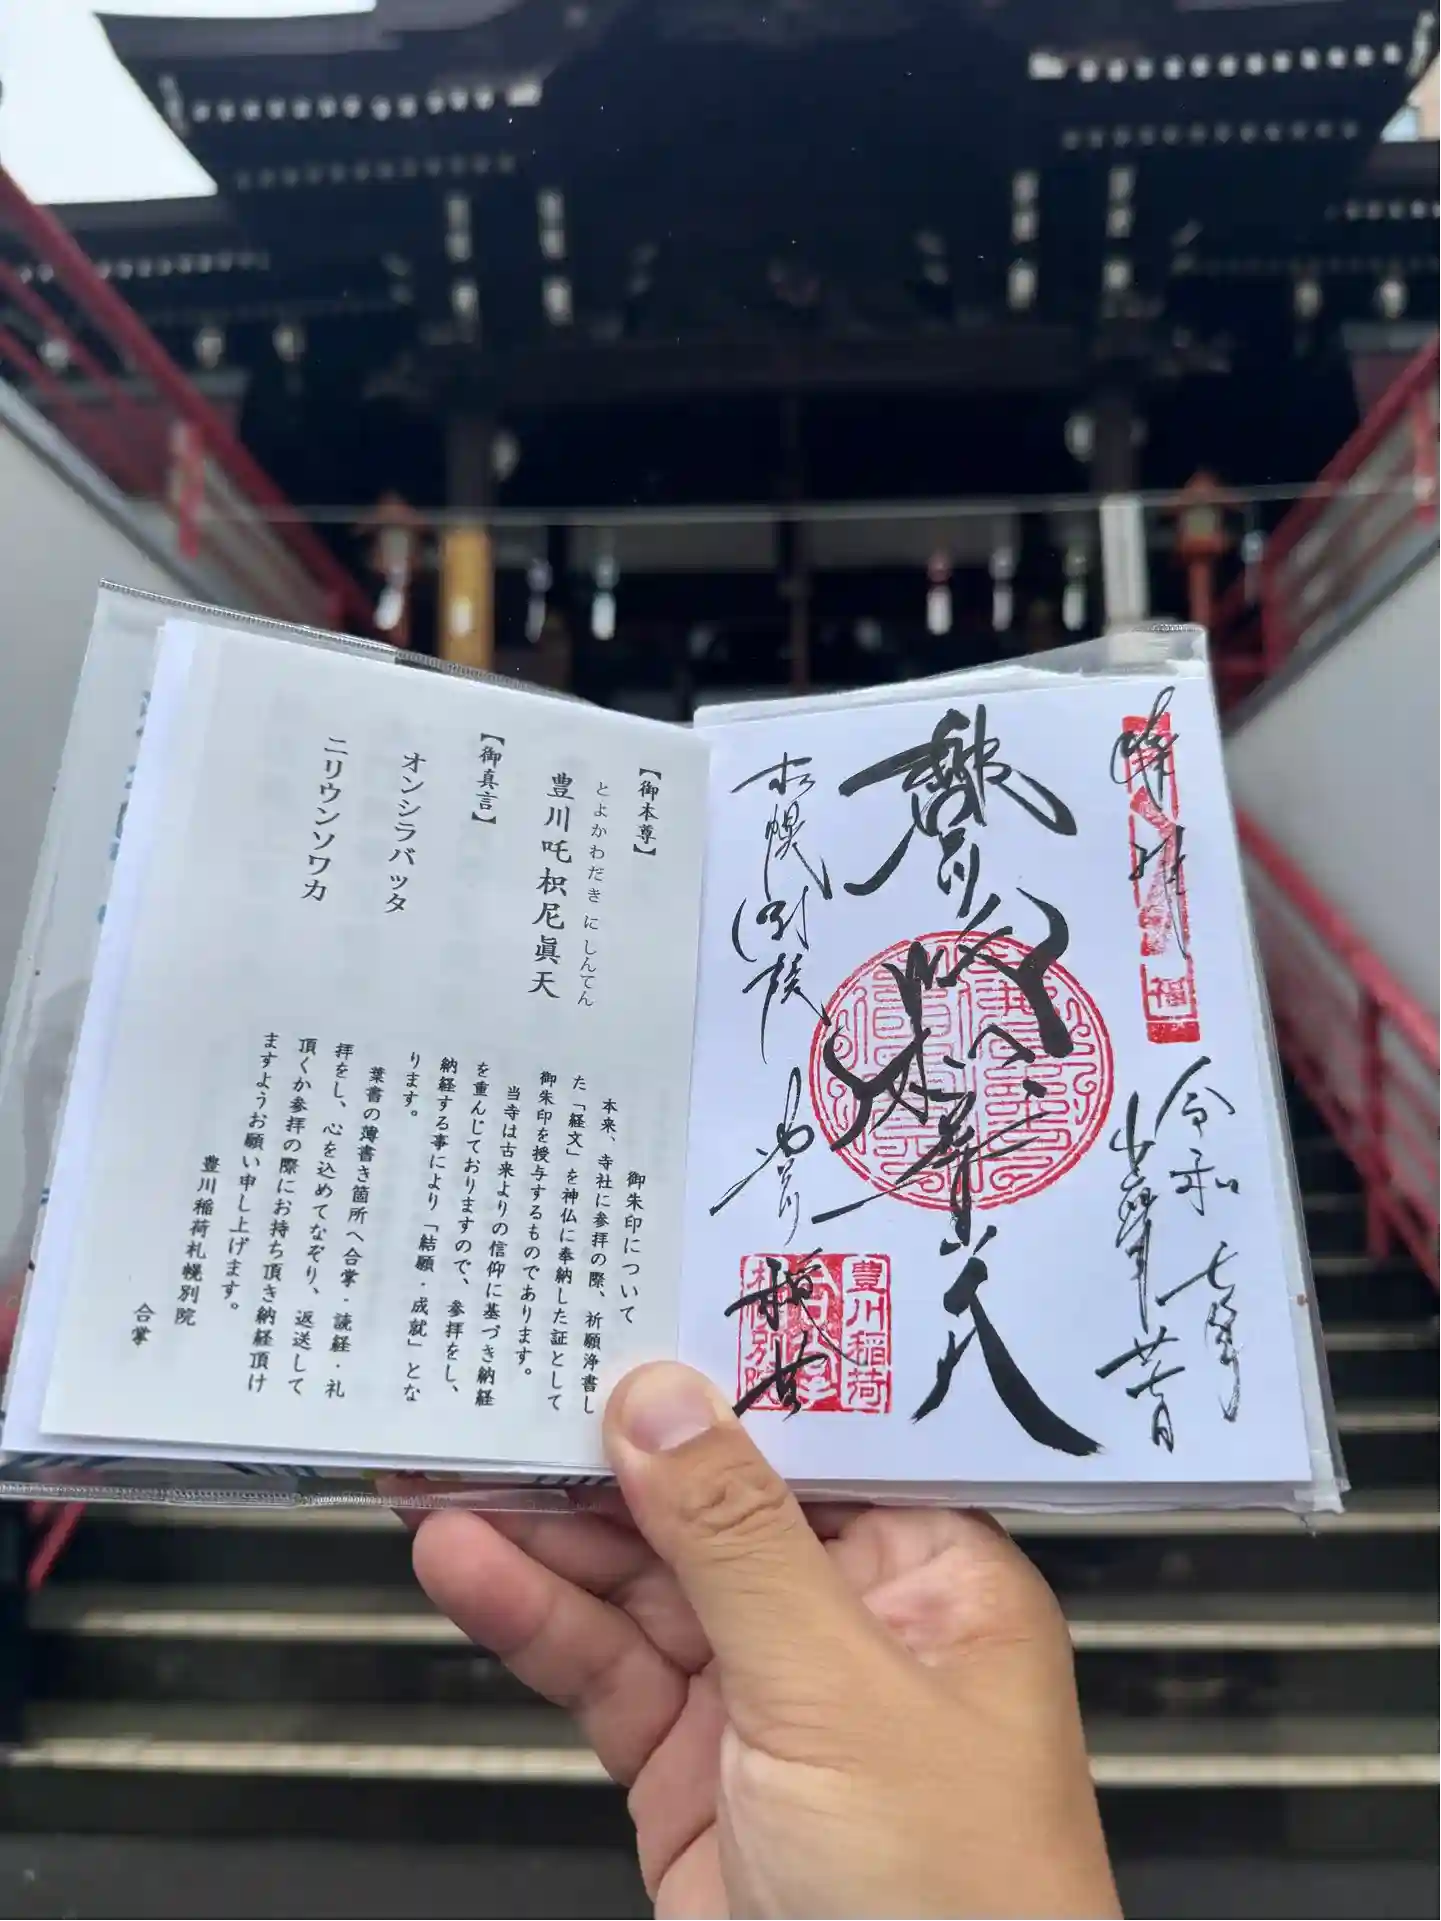 奉拝
福
令和七年
豊川吒枳尼眞天
札幌別院
豊川
稲荷
豊川稲荷
札幌別院
【御本尊】
とよかわだきにしんてん
豊川吒枳尼眞天
【御真言】
オンシラバッタ
ニリウンソワカ
御朱印について
本来、寺社に参拝の際、祈願浄書し
た「経文」を神仏に奉納した証として
御朱印を授与するものであります。
当寺は古来よりの信仰に基づき納経
を重んじておりますので、参拝をし、
納経する事により「結願・成就」とな
ります。
葉書の薄書き箇所へ合掌・読経・礼
拝をし、心を込めてなぞり、返送して
頂くか参拝の際にお持ち頂き納経頂け
ますようお願い申し上げます。
豊川稲荷札幌別院
合掌